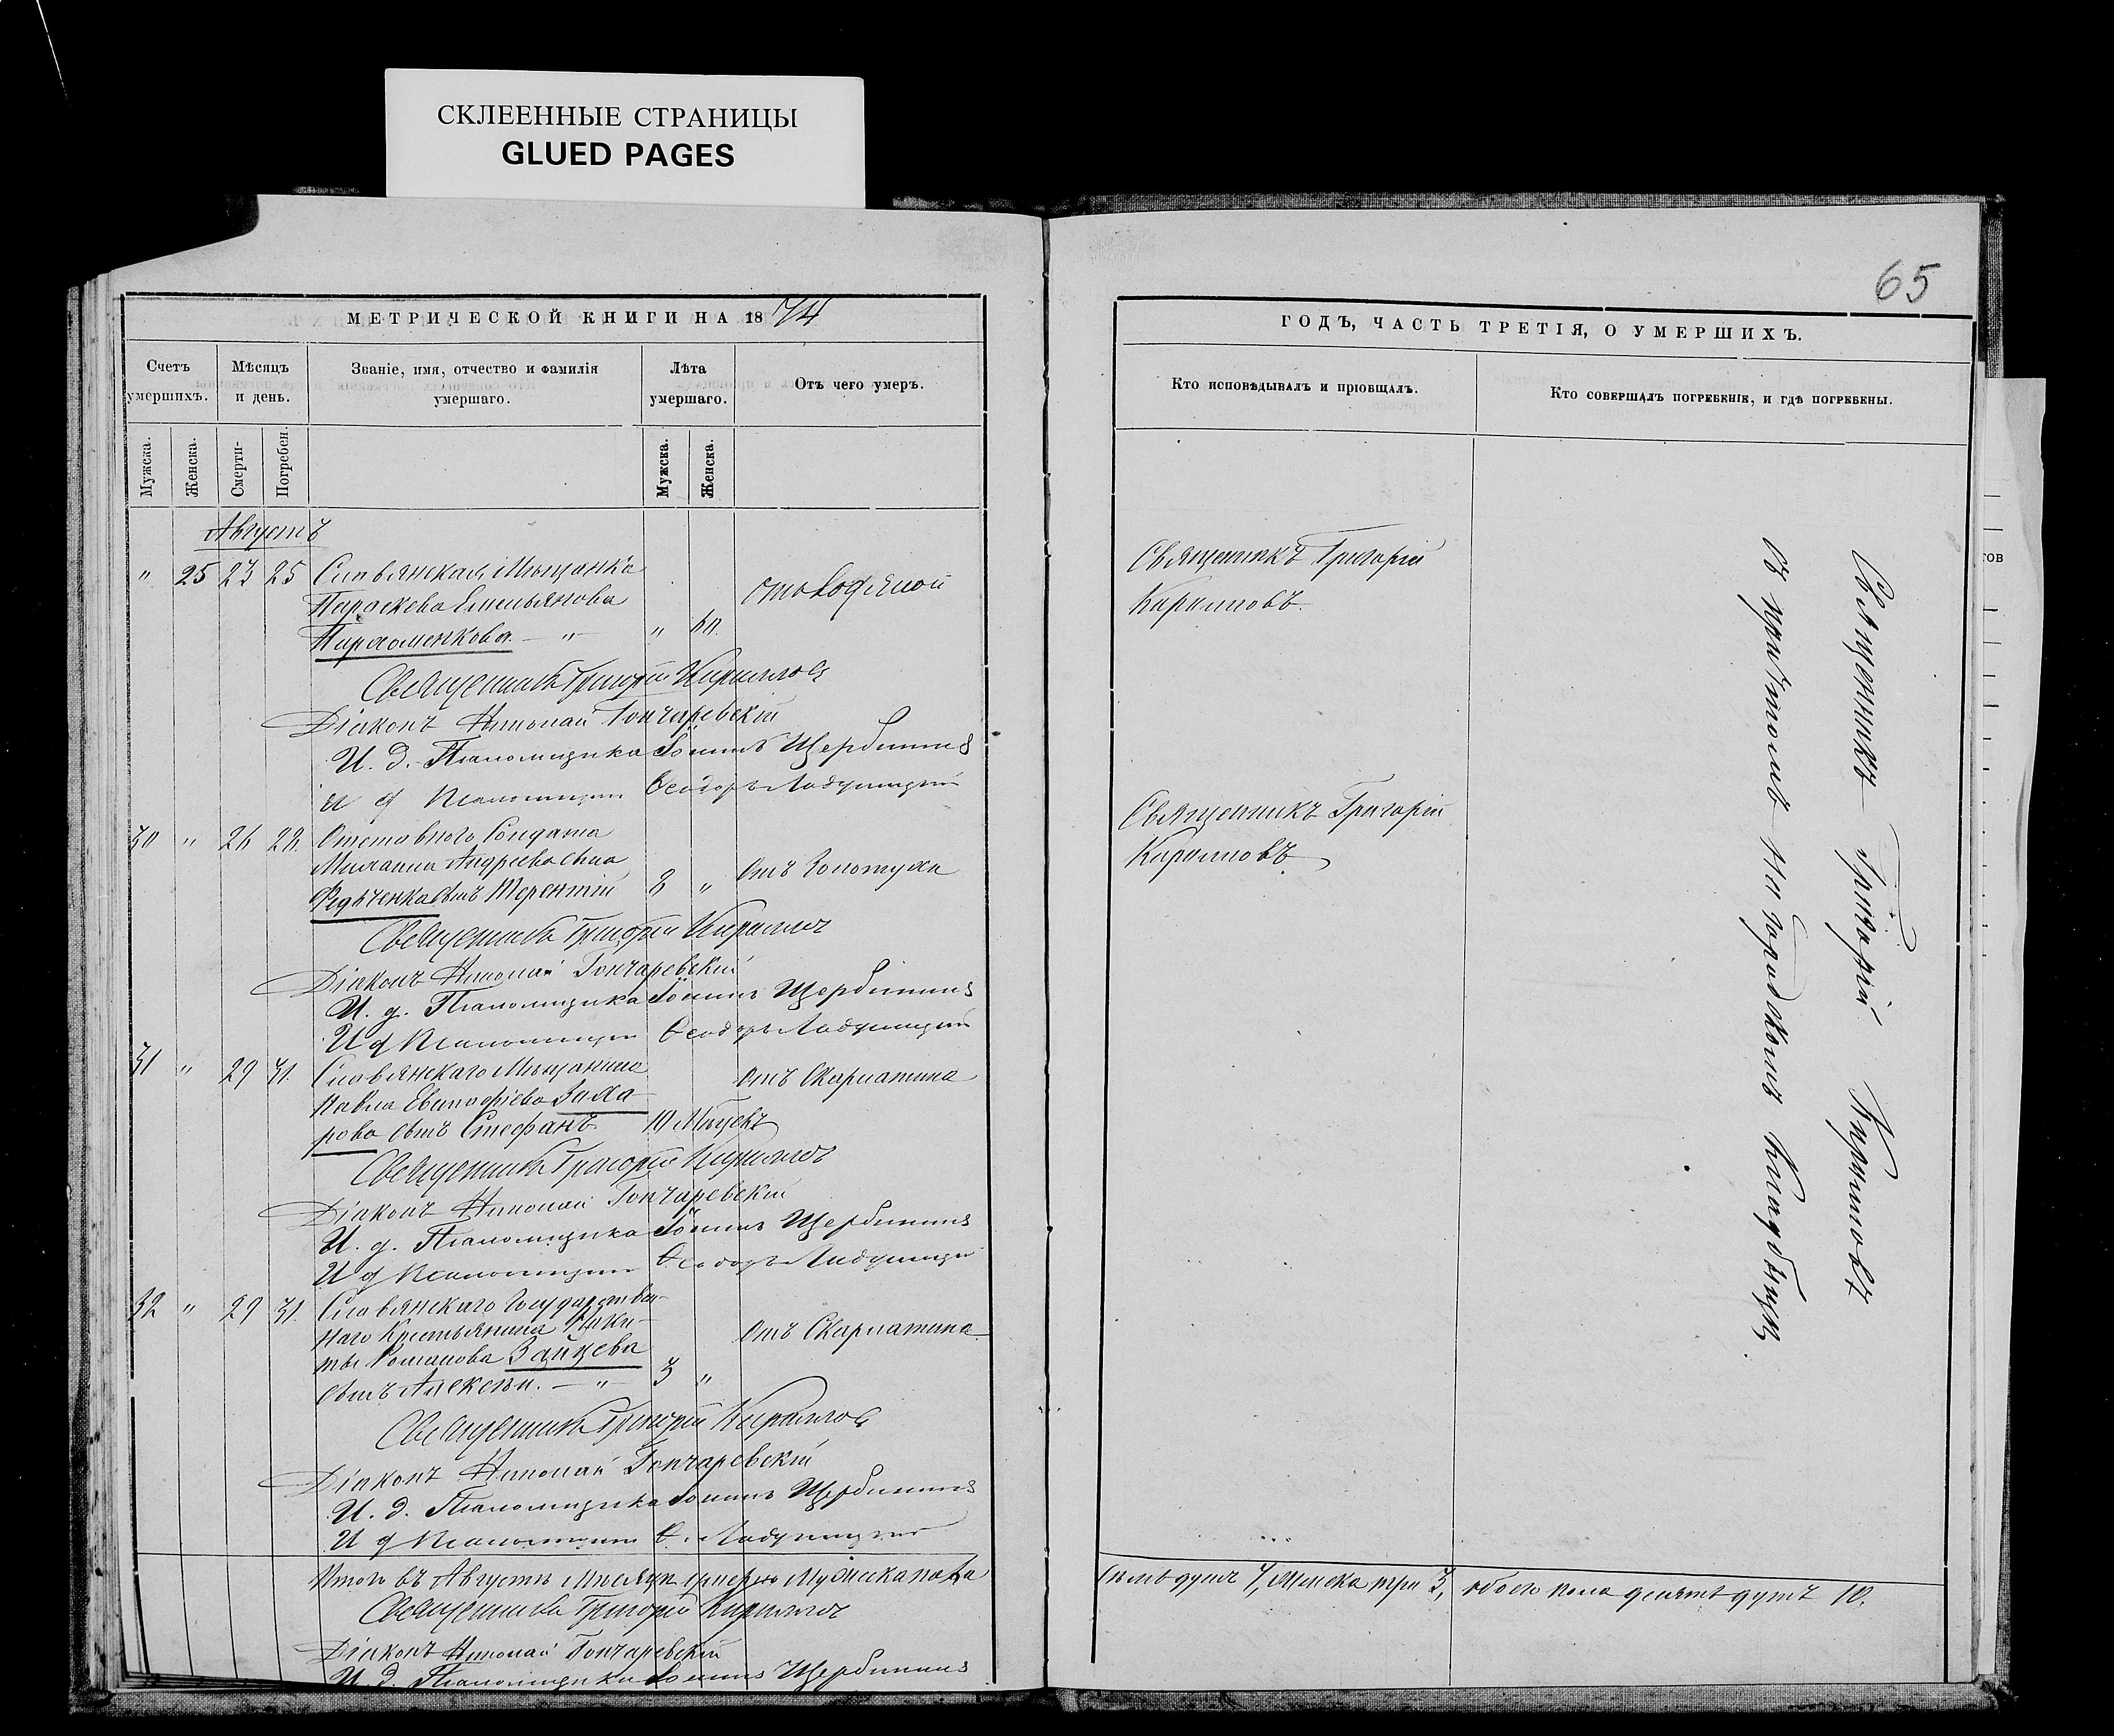 СКЛЕЕННЫЕ СТРАНИЦЫ
GLUED PAGES
65
МЕТРИЧЕСКОЙ КНИГИ НА 1874
ГОДЪ, ЧАСТЬ ТРЕТІЯ, О УМЕРШИХЪ.
Счетъ умершихъ.
Мѣсяцъ и день.
Званіе, имя, отчество и фамилія умершаго.
Лѣта умершаго.
Отъ чего умеръ.
Кто исповѣдывалъ и пріобщалъ.
Кто совершалъ погребеніе, и гдѣ погребены.
Мужска.
Женска.
Смерти-
Погребен.
Мужска.
Женска.
Августъ
" 25 23 25 Славянская Мѣщанка
Параскева Емельянова
Пархоменкова — " — " 60.
отъ водяной
Священникъ Григорій
Кирилловъ.
Священникъ Григорій Кирилловъ
Діаконъ Николай Гончаревскій
И. д. Псаломщика Іоаннъ Щербининъ
И д Псаломщика Ѳеодоръ
30 " 26 28. Отставного Солдата
Михаила Андреева сына
Федченка сынъ Терентій 8 "
Отъ Золотухи
Священникъ Григорій
Кирилловъ
Священникъ Григорій Кирилловъ
Діаконъ Николай Гончаревскій
И. д. Псаломщика Іоаннъ Щербининъ
И д Псаломщика Ѳеодоръ
31 " 29 31. Славянскаго Мѣщанина
Павла Евстафіева Заха-
рова сынъ Стефанъ. 10 Мѣсяц
Отъ Скарлатина
Священникъ Григорій Кирилловъ
Діаконъ Николай Гончаревскій
И. д. Псаломщика Іоаннъ Щербининъ
И д Псаломщика Ѳеодоръ
32 " 29 31. Славянскаго Государствен-
наго Крестьянина Ники-
ты Романова Зайцева
сынъ Алексѣй. — " — 3 "
Отъ Скарлатина
Священникъ Григорій Кирилловъ
Діаконъ Николай Гончаревскій
И. д. Псаломщика Іоаннъ Щербининъ
И д Псаломщика Ѳ.
Итого въ Августѣ Мѣсяцѣ умерло Мужска пола
семь душъ 7, Женска три 3, обоего пола десять душъ 10.
Священникъ Григорій Кирилловъ
Діаконъ Николай Гончаревскій
И. д. Псаломщика Іоаннъ Щербининъ
Священникъ Григорій Кирилловъ
съ причтомъ на городскомъ кладбищѣ.